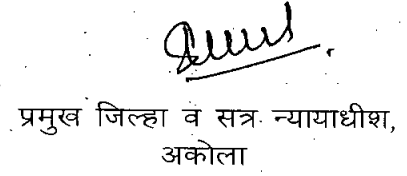 प्रमुख जिल्हा व सत्र न्यायाधीश,
अकोला